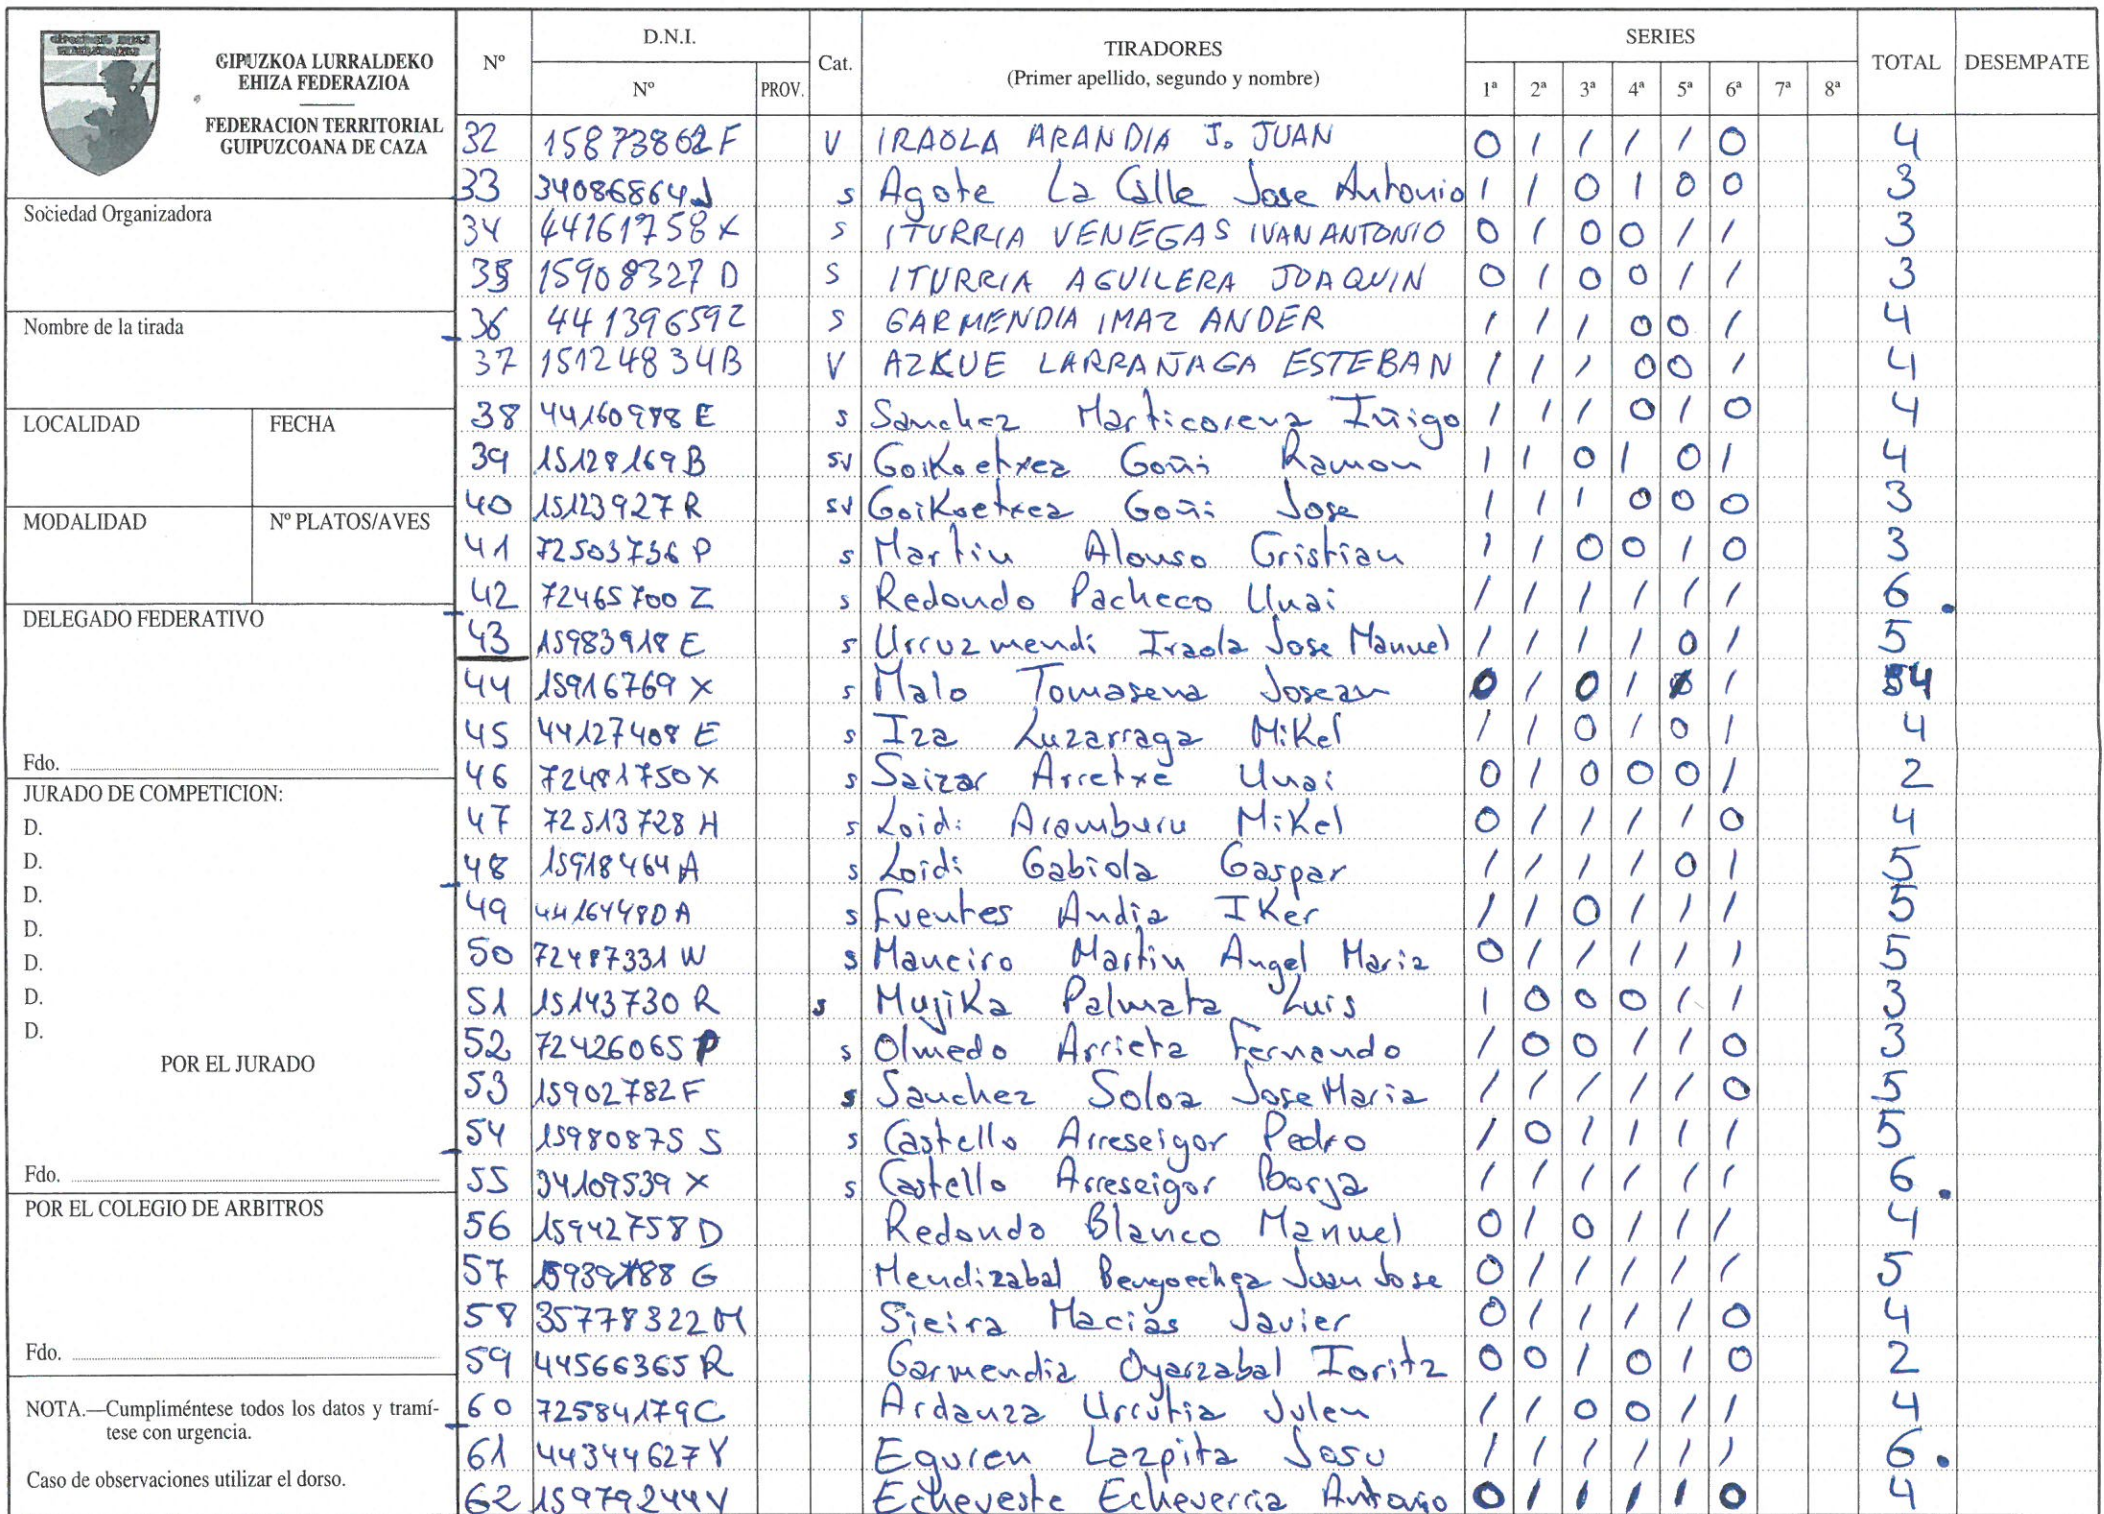 GIPUZKOA LURRALDEKO
EHIZA FEDERAZIOA
FEDERACION TERRITORIAL
GUIPUZCOANA DE CAZA
Sociedad Organizadora
Nombre de la tirada
LOCALIDAD FECHA
MODALIDAD Nº PLATOS/AVES
DELEGADO FEDERATIVO
Fdo.
JURADO DE COMPETICION:
D.
D.
D.
D.
D.
D.
D.
POR EL JURADO
Fdo.
POR EL COLEGIO DE ARBITROS
Fdo.
NOTA.—Cumpliméntese todos los datos y tramí-
tese con urgencia.
Caso de observaciones utilizar el dorso.
Nº D.N.I. Cat. TIRADORES SERIES TOTAL DESEMPATE
Nº PROV. (Primer apellido, segundo y nombre) 1ª 2ª 3ª 4ª 5ª 6ª 7ª 8ª
32 15873862F V IRAOLA ARANDIA J. JUAN 0 / / / / 0 4
33 34086864J s Agote La Calle Jose Antonio 1 / 0 1 0 0 3
34 44161758X S ITURRIA VENEGAS IVAN ANTONIO 0 / 0 0 / / 3
35 15908327 D S ITURRIA AGUILERA JOAQUIN 0 / 0 0 / / 3
36 44139659Z S GARMENDIA IMAZ ANDER / / / 0 0 / 4
37 15124834B V AZKUE LARRAÑAGA ESTEBAN / / / 0 0 / 4
38 44160978 E s Sanchez Marticorena Iñigo / / / 0 / 0 4
39 15128169 B sv Goikoetxea Goñi Ramon / / 0 / 0 / 4
40 15123927 R sv Goikoetxea Goñi Jose / / / 0 0 0 3
41 72503736 P s Martin Alonso Cristian / / 0 0 / 0 3
42 72465700 Z s Redondo Pacheco Unai / / / / / / 6 .
43 15983918 E s Urruzmendi Iraola Jose Manuel / / / / 0 / 5
44 15916769 X s Malo Tomasena Josean 0 / 0 / / / 4
45 44127408 E s Iza Luzarraga Mikel / / 0 / 0 / 4
46 72481750 X s Saizar Arretxe Unai 0 / 0 0 0 / 2
47 72513728 H s Loidi Aramburu Mikel 0 / / / / 0 4
48 15918464 A s Loidi Gabiola Gaspar / / / / 0 / 5
49 44164480 A s Fuentes Andia Iker / / 0 / / / 5
50 72487331 W s Maneiro Martin Angel Maria 0 / / / / / 5
51 15143730 R s Mujika Palmata Luis / 0 0 0 / / 3
52 72426065 P s Olmedo Arrieta Fernando / 0 0 / / 0 3
53 15902782 F s Sanchez Soloa Jose Maria / / / / / 0 5
54 15980875 S s Castello Arreseigor Pedro / 0 / / / / 5
55 34109539 X s Castello Arreseigor Borja / / / / / / 6 .
56 15942758 D Redondo Blanco Manuel 0 / 0 / / / 4
57 G Mendizabal Bengoechea Juan Jose 0 / / / / / 5
58 35778322 M Sieira Macias Javier 0 / / / / 0 4
59 44566365 R Garmendia Oyarzabal Ioritz 0 0 / 0 / 0 2
60 72584179C Ardanza Urrutia Julen / / 0 0 / / 4
61 44344627 Y Eguren Lazpita Josu / / / / / / 6 .
62 15979244 Y Echeveste Echeverria Antonio 0 / / / / 0 4